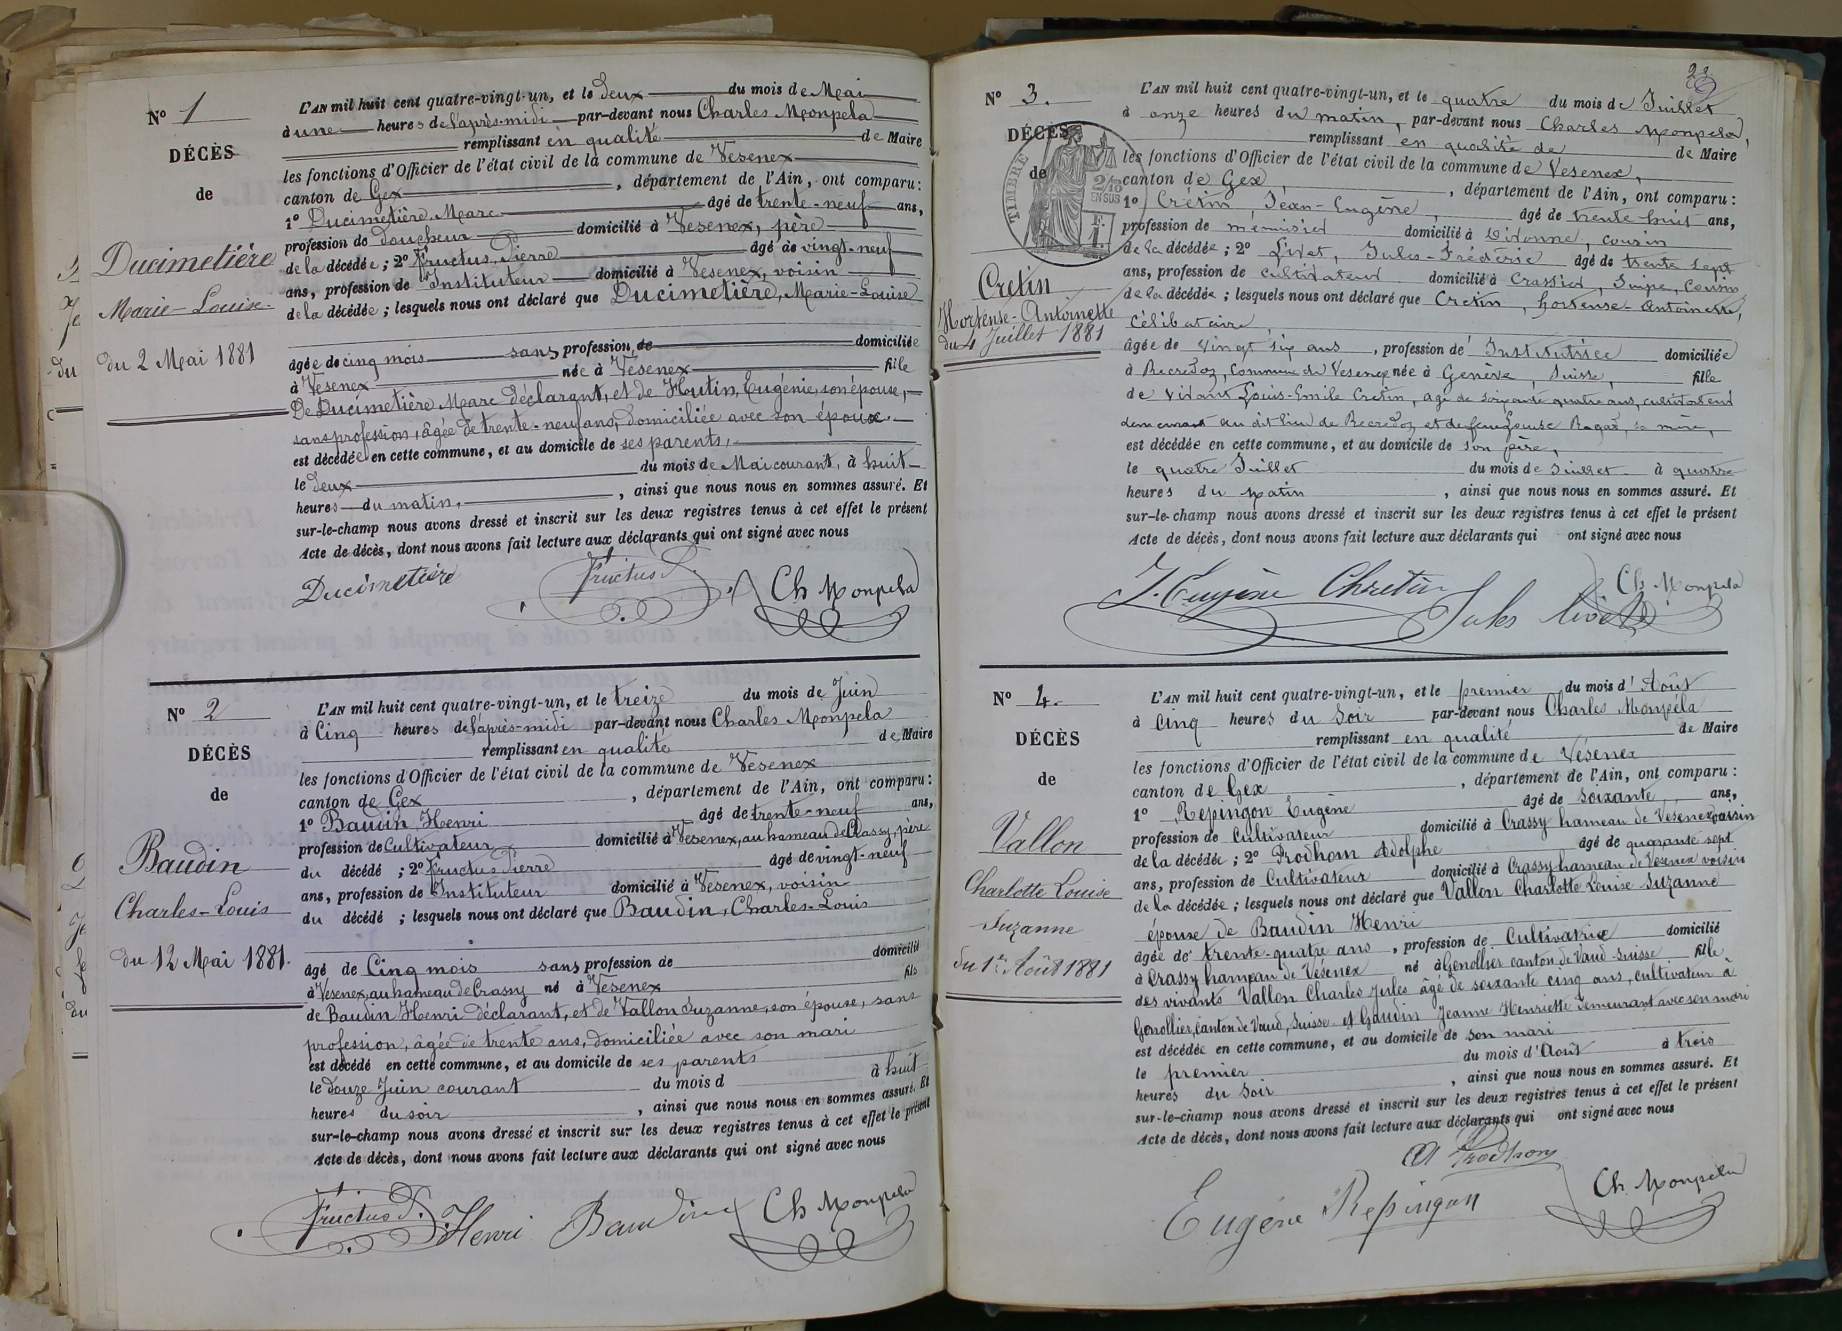 N° 1
DÉCÈS
de
Ducimetière
Marie-Louise
du 2 Mai 1881
L'AN mil huit cent quatre-vingt-un, et le Deux du mois de Mai
à une heures de l'après-midi par-devant nous Charles Monpela
remplissant en qualité de Maire
les fonctions d'Officier de l'état civil de la commune de Vesenex
canton de Gex, département de l'Ain, ont comparu:
1° Ducimetière Marc âgé de trente-neuf ans,
profession de domicilié à Vesenex, père
de la décédée; 2° Fructus, Pierre âgé de vingt-neuf
ans, profession de Instituteur domicilié à Vesenex, voisin
de la décédée; lesquels nous ont déclaré que Ducimetière, Marie-Louise
âgée de cinq mois sans profession, de domiciliée
à Vesenex née à Vesenex fille
De Ducimetière Marc déclarant, et de Houtin, Eugénie, son épouse,
sans profession, âgée de trente-neuf ans, domiciliée avec son époux.
est décédée en cette commune, et au domicile de ses parents,
le Deux du mois de Mai courant, à huit
heures du matin, ainsi que nous nous en sommes assuré. Et
sur-le-champ nous avons dressé et inscrit sur les deux registres tenus à cet effet le présent
Acte de décès, dont nous avons fait lecture aux déclarants qui ont signé avec nous
Ducimetière Fructus P. Ch Monpela
N° 2
DÉCÈS
de
Baudin
Charles-Louis
du 12 Mai 1881.
L'AN mil huit cent quatre-vingt-un, et le treize du mois de Juin
à Cinq heures de l'après-midi par-devant nous Charles Monpela
remplissant en qualité de Maire
les fonctions d'Officier de l'état civil de la commune de Vesenex
canton de Gex, département de l'Ain, ont comparu:
1° Baudin Henri âgé de trente-neuf ans,
profession de Cultivateur domicilié à Vesenex, au hameau de Crassy, père
du décédé; 2° Fructus Pierre âgé de vingt-neuf
ans, profession de Instituteur domicilié à Vesenex, voisin
du décédé; lesquels nous ont déclaré que Baudin, Charles-Louis
âgé de Cinq mois sans profession de domicilié
à Vesenex, au hameau de Crassy né à Vesenex fils
de Baudin Henri déclarant, et de Vallon Suzanne, son épouse, sans
profession, âgée de trente ans, domiciliée avec son mari
est décédé en cette commune, et au domicile de ses parents
le douze Juin courant du mois d à huit
heures du soir, ainsi que nous nous en sommes assuré. Et
sur-le-champ nous avons dressé et inscrit sur les deux registres tenus à cet effet le présent
Acte de décès, dont nous avons fait lecture aux déclarants qui ont signé avec nous
Fructus P. Henri Baudin Ch Monpela
23
N° 3.
DÉCÈS
de
TIMBRE
2/10
EN SUS
Cretin
Hortense-Antoinette
du 4 Juillet 1881
L'AN mil huit cent quatre-vingt-un, et le quatre du mois de Juillet
à onze heures du matin, par-devant nous Charles Monpela,
remplissant en qualité de de Maire
les fonctions d'Officier de l'état civil de la commune de Vesenex,
canton de Gex, département de l'Ain, ont comparu:
1° Crétin, Jean-Eugène, âgé de trente huit ans,
profession de menuisier domicilié à Divonne, cousin
de la décédée; 2° Livet, Jules-Fréderic âgé de trente sept
ans, profession de cultivateur domicilié à Crassier, Suisse, Cousin
de la décédée; lesquels nous ont déclaré que Cretin, hortense-antoinette,
Célibataire
âgée de vingt six ans, profession de Institutrice domiciliée
à Recredoz, Commune de Vesenex née à Genève, Suisse, fille
de vivant Louis-Emile Cretin, agé de soixante quatre ans, cultivateur
demeurant au dit lieu de Recredoz, et de sa mère,
est décédée en cette commune, et au domicile de son père,
le quatre Juillet du mois de Juillet à quatre
heures du matin, ainsi que nous nous en sommes assuré. Et
sur-le-champ nous avons dressé et inscrit sur les deux registres tenus à cet effet le présent
Acte de décès, dont nous avons fait lecture aux déclarants qui ont signé avec nous
J. Eugène Chretin Jules Livet Ch Monpela
N° 4.
DÉCÈS
de
Vallon
Charlotte Louise
Suzanne
du 1er Août 1881
L'AN mil huit cent quatre-vingt-un, et le premier du mois d'Août
à Cinq heures du Soir par-devant nous Charles Monpéla
remplissant en qualité de Maire
les fonctions d'Officier de l'état civil de la commune de Vésenex
canton de Gex, département de l'Ain, ont comparu:
1° Repingon Eugène âgé de soixante ans,
profession de Cultivateur domicilié à Crassy hameau de Vésenex voisin
de la décédée; 2° Prodhom Adolphe âgé de quarante sept
ans, profession de Cultivateur domicilié à Crassy hameau de Vesenex voisin
de la décédée; lesquels nous ont déclaré que Vallon Charlotte Louise Suzanne
épouse de Baudin Henri
âgée de trente-quatre ans, profession de Cultivatrice domicilié
à Crassy hameau de Vésenex né à Genollier canton de Vaud-Suisse fille
des vivants Vallon Charles Jules âgé de soixante cinq ans, cultivateur à
Genollier, canton de Vaud, Suisse et Gaudin Jeanne Henriette demeurant avec son mari
est décédée en cette commune, et au domicile de son mari
le premier du mois d'Août à trois
heures du Soir, ainsi que nous nous en sommes assuré. Et
sur-le-champ nous avons dressé et inscrit sur les deux registres tenus à cet effet le présent
Acte de décès, dont nous avons fait lecture aux déclarants qui ont signé avec nous
A Prodhom
Eugène Repingon Ch Monpela